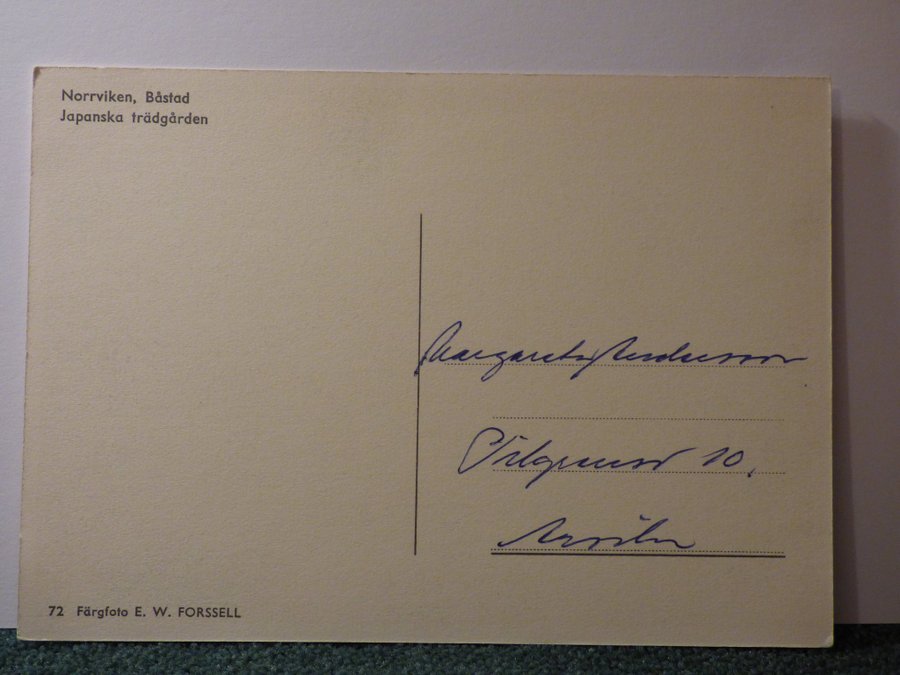 Norrviken, Båstad
Japanska trädgården
Margareta Andersson
10.
Arvika
72 Färgfoto E. W. FORSSELL